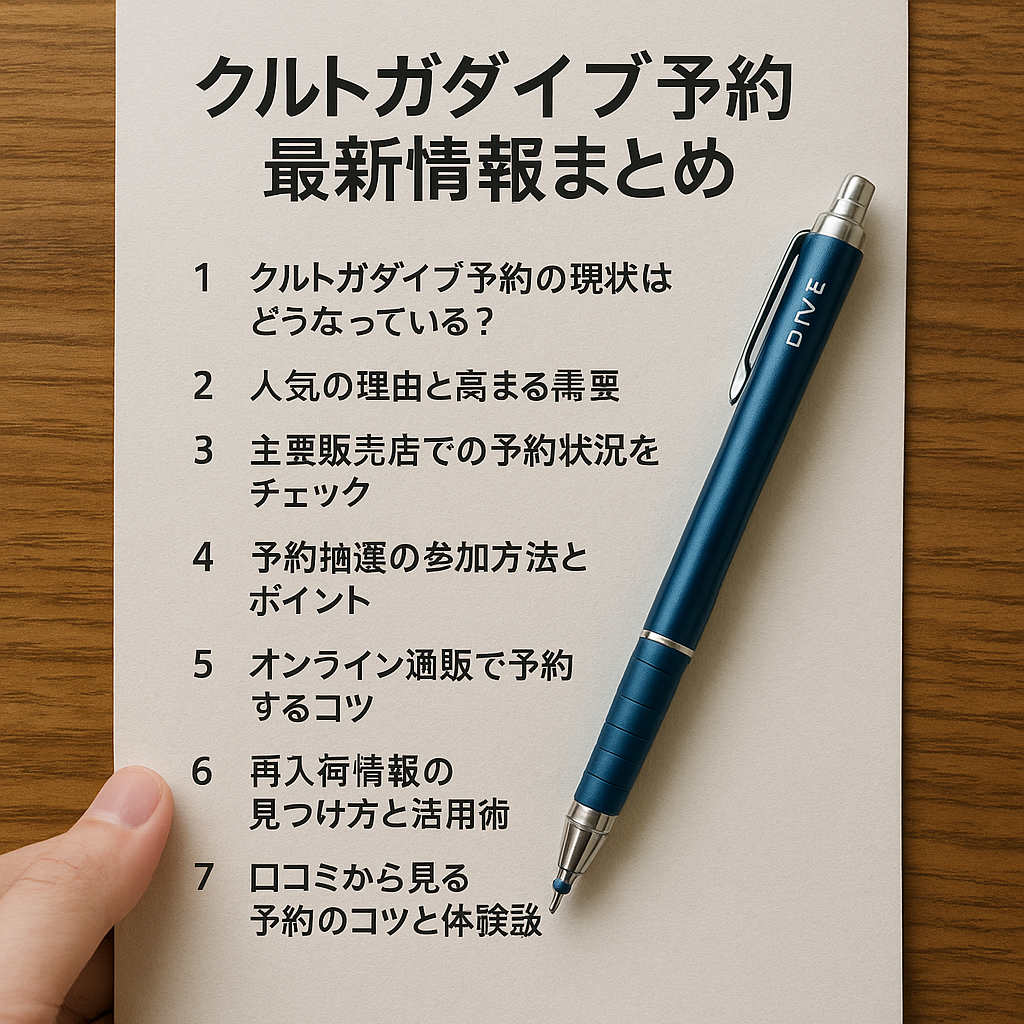 クルトガダイブ予約
最新情報まとめ
1 クルトガダイブ予約の現状は
どうなっている？
2 人気の理由と高まる需要
3 主要販売店での予約状況を
チェック
4 予約抽選の参加方法と
ポイント
5 オンライン通販で予約
するコツ
6 再入荷情報の
見つけ方と活用術
7 口コミから見る
予約のコツと体験談
DIVE